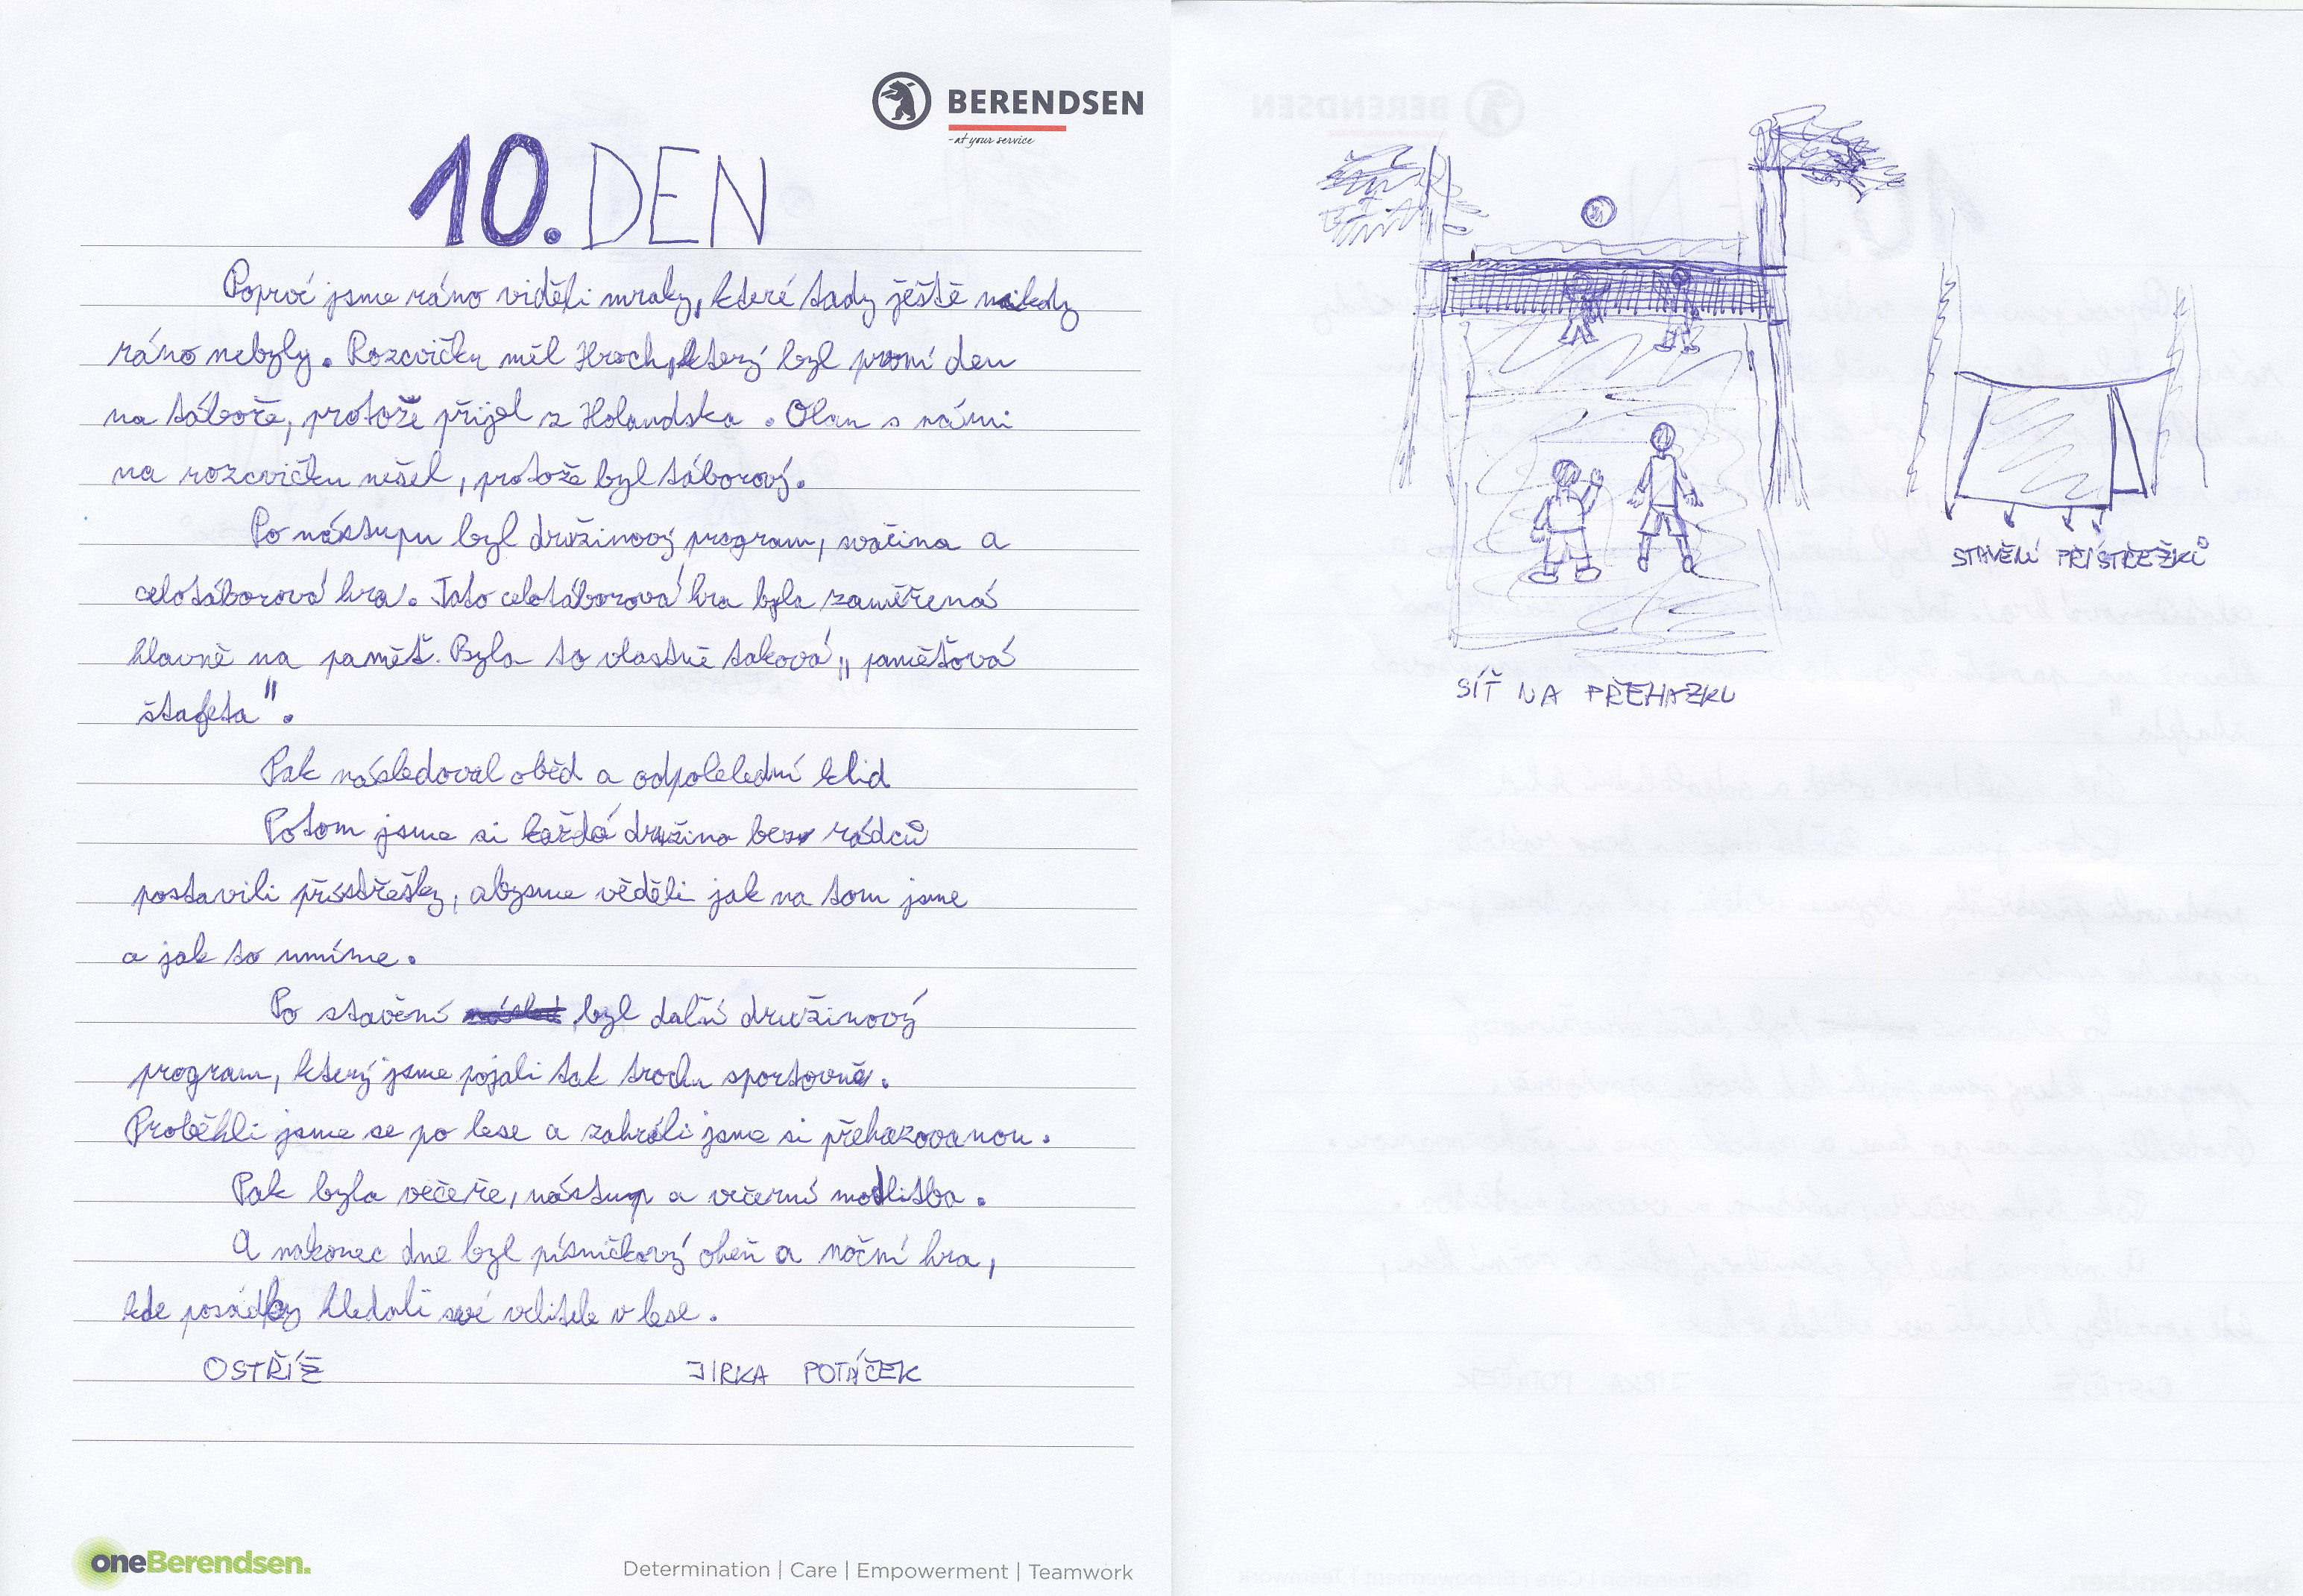 BERENDSEN
-at your service
10. DEN
Poprvé jsme ráno viděli mraky, které tady ještě nikdy
ráno nebyly. Rozcvičku měl Hroch, který byl první den
na táboře, protože přijel z Holandska. Olan s námi
na rozcvičku nešel, protože byl táborový.
Po nástupu byl družinový program, svačina a
celotáborová hra. Tato celotáborová hra byla zaměřená
hlavně na paměť. Byla to vlastně taková „paměťová
štafeta".
Pak následoval oběd a odpolelední klid
Potom jsme si každá družina bez rádců
postavili přístřešky, abysme věděli jak na tom jsme
a jak to umíme.
Po stavění byl další družinový
program, který jsme pojali tak trochu sportovně.
Proběhli jsme se po lese a zahráli jsme si přehazovanou.
Pak byla večeře, nástup a večerní modlitba.
A nakonec dne byl písničkový oheň a noční hra,
kde posádky hledali své velitele v lese.
OSTŘÍŽ JIRKA POTÁČEK
oneBerendsen.
Determination | Care | Empowerment | Teamwork
SÍŤ NA PŘEHAZKU
STAVĚNÍ PŘÍSTŘEŽKŮ